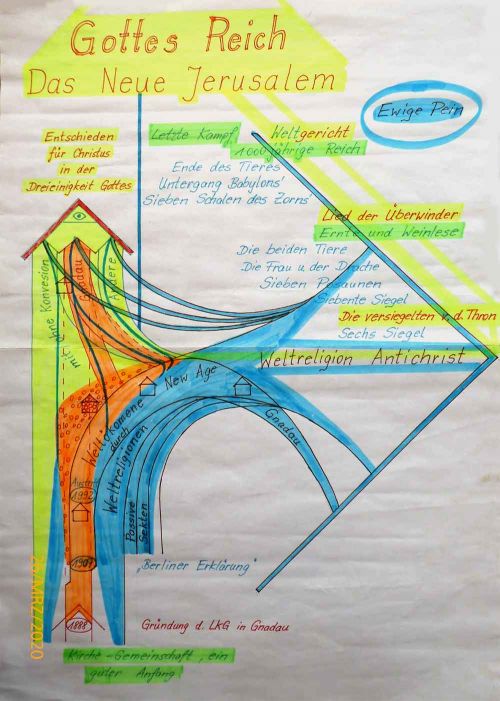 Gottes Reich
Das Neue Jerusalem
Ewige Pein
Entschieden
für Christus
in der
Dreieinigkeit Gottes
Letzte Kampf
Weltgericht
1000 jährige Reich
Ende des Tieres
Untergang Babylons'
Sieben Schalen des Zorns'
Lied der Überwinder
Ernte und Weinlese
Die beiden Tiere
Die Frau u. der Drache
Sieben Posaunen
Siebente Siegel
Die versiegelten v. d. Thron
Sechs Siegel
Weltreligion Antichrist
mit ohne Konvesion
Gnadau
Andere
New Age
Weltökomene
durch
Weltreligionen
Gnadau
Passive
Sekten
1992
1907
"Berliner Erklärung"
1888
Gründung d. LKG in Gnadau
Kirche - Gemeinschaft, ein
guter Anfang